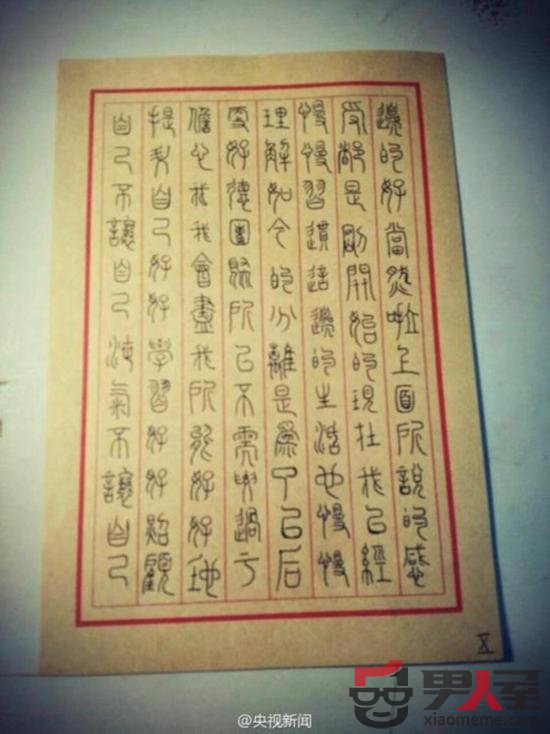 邊的好當然啦上面所說的感
受都是剛開始的現在我已經
慢慢習慣這邊的生活也慢慢
理解如今的分離是爲了以后
更好德團聚所以不需要過于
擔心我我會盡我所能好好地
提升自己好好學習好好照顧
自己不讓自己泄氣不讓自己
X
男人屋
xiaomeme.com
@央视新闻